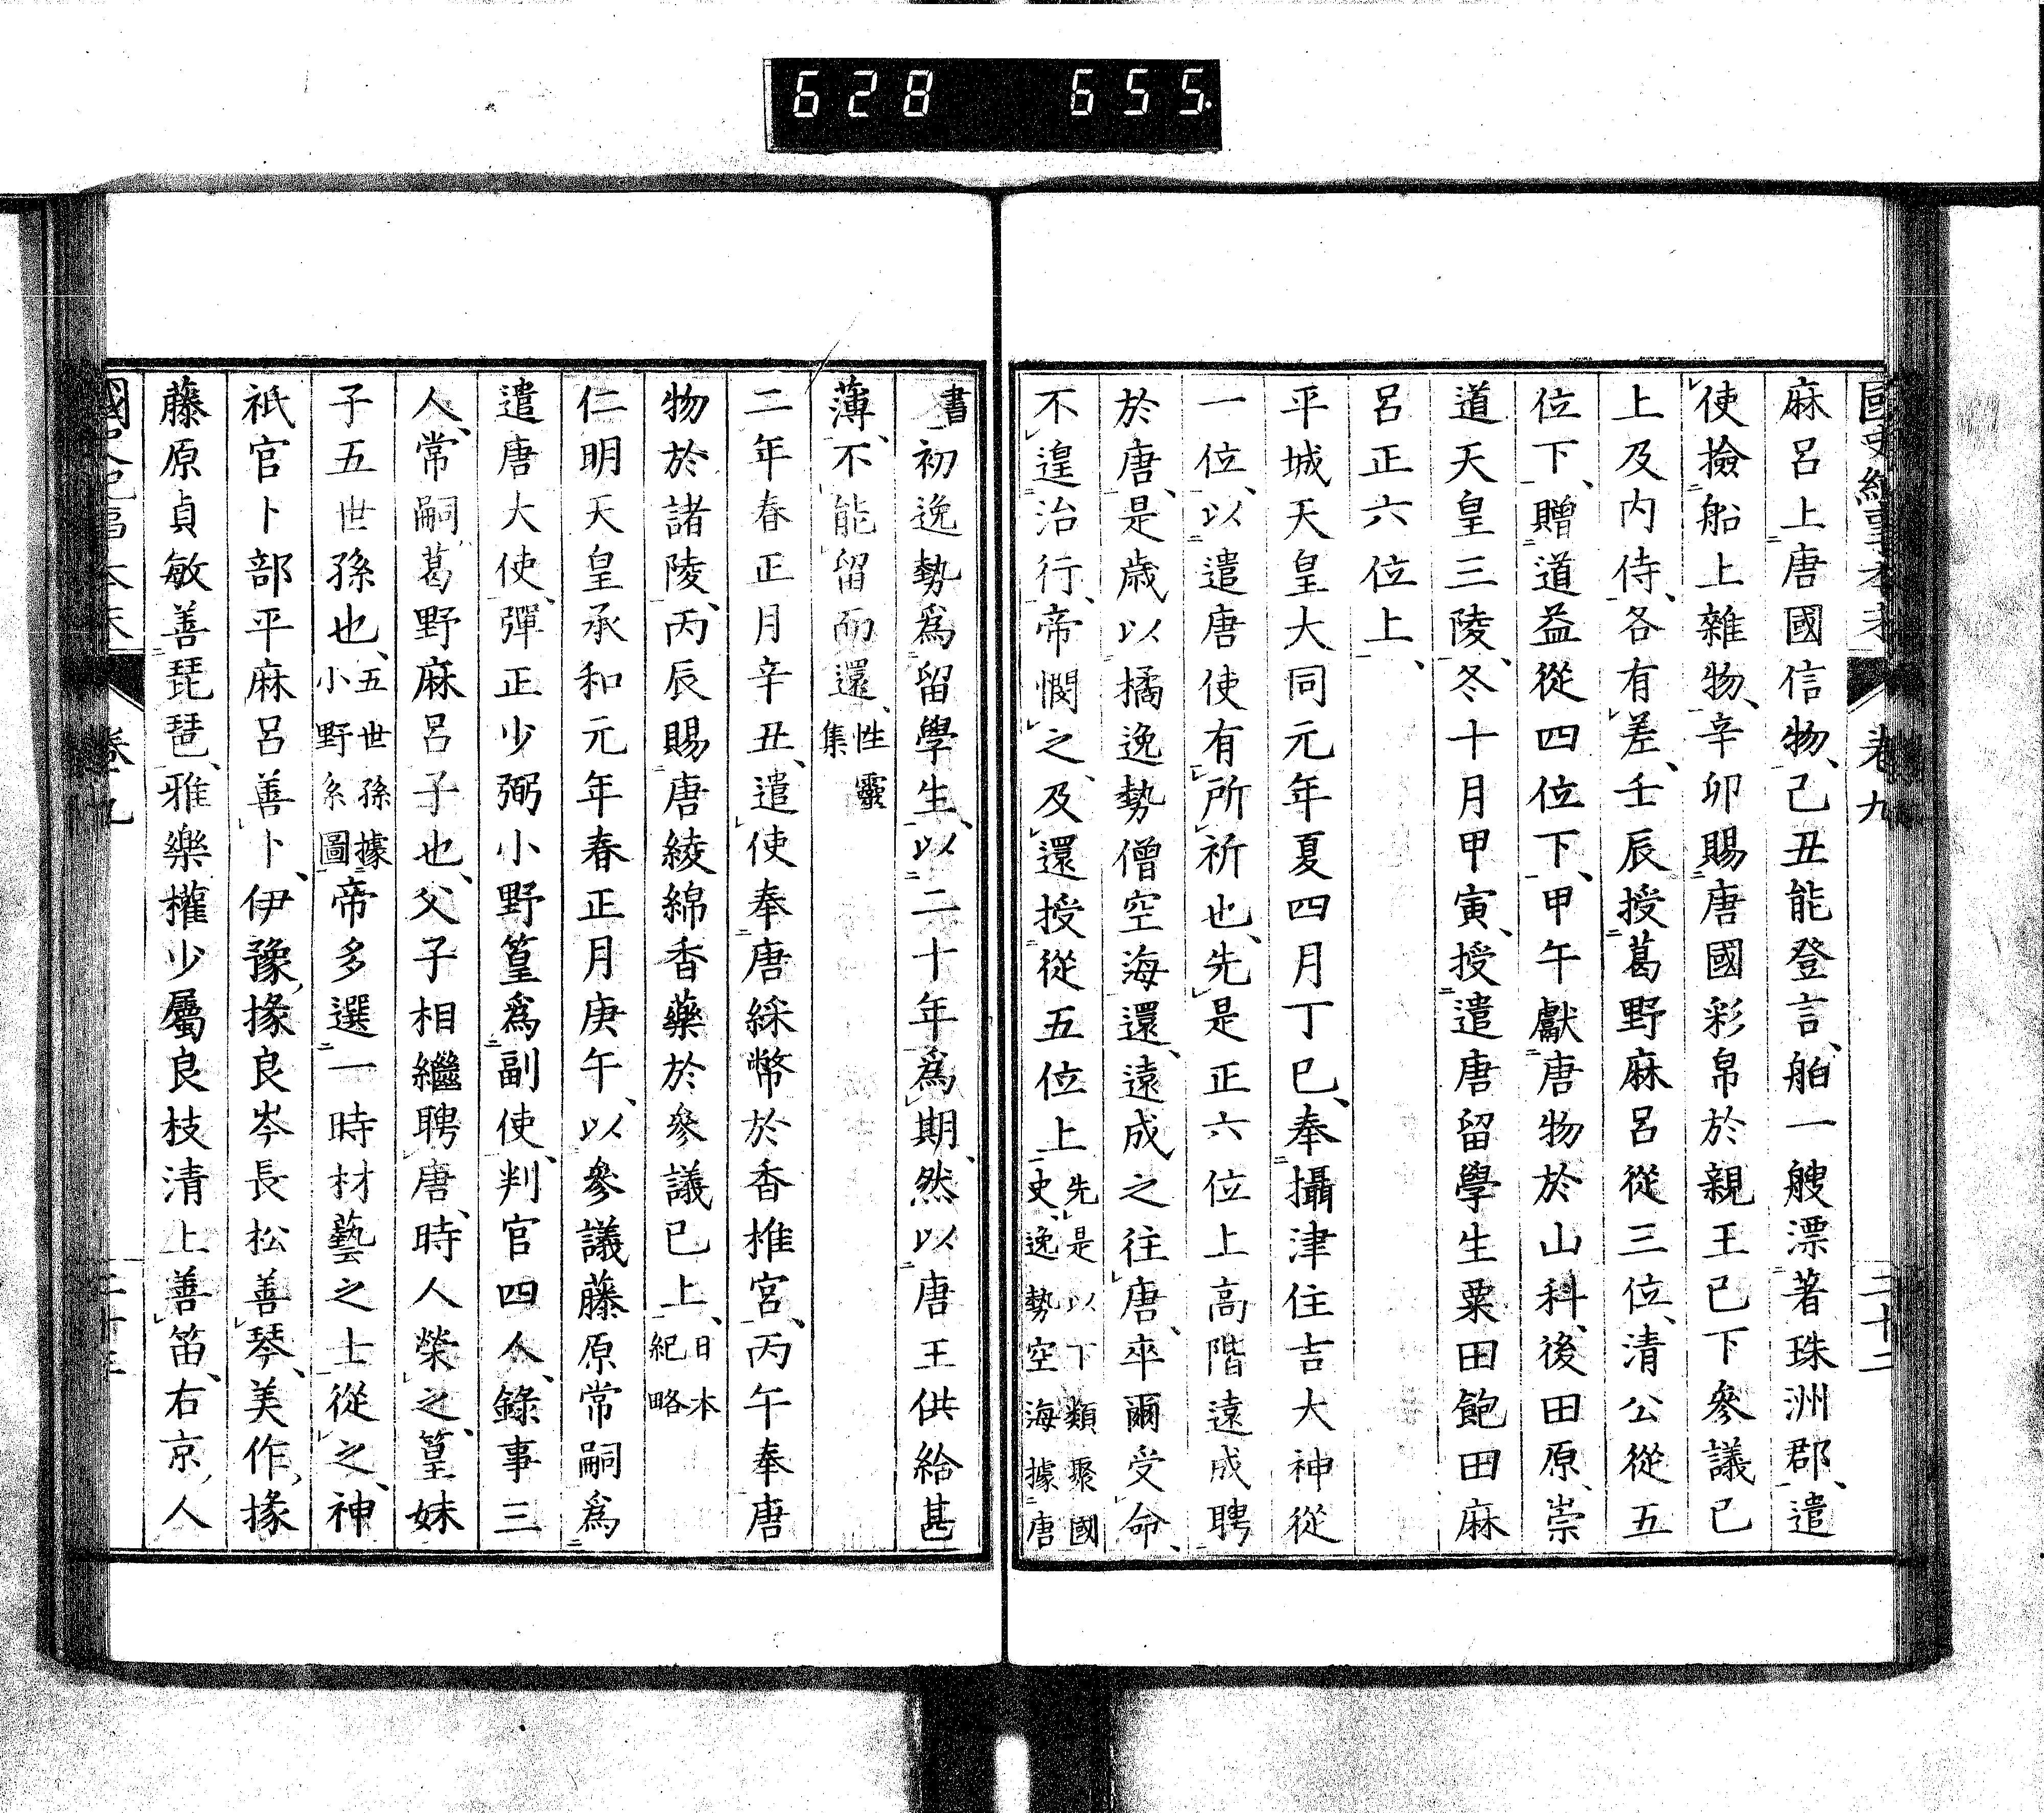 628 655
國史紀事本末 卷九 二十二
麻呂上唐國信物、己丑能登言、舶一艘漂著珠洲郡、遣
使撿船上雜物、辛卯賜唐國彩帛於親王已下參議已
上及内侍、各有差、壬辰授葛野麻呂從三位、清公從五
位下、贈道益從四位下、甲午獻唐物於山科、後田原、崇
道天皇三陵、冬十月甲寅、授遣唐留學生粟田飽田麻
呂正六位上、
平城天皇大同元年夏四月丁巳、奉攝津住吉大神從
一位、以遣唐使有所祈也、先是正六位上高階遠成聘
於唐、是歲以橘逸勢僧空海還、遠成之往唐、卒爾受命、
不遑治行、帝憫之、及還授從五位上先是以下類聚國史、逸勢空海據唐
書初逸勢爲留學生、以二十年爲期、然以唐王供給甚
薄、不能留而還、性靈集
二年春正月辛丑、遣使奉唐綵幣於香椎宮、丙午奉唐
物於諸陵、丙辰賜唐綾綿香藥於參議已上、日本紀略
仁明天皇承和元年春正月庚午、以參議藤原常嗣爲
遣唐大使、彈正少弼小野篁爲副使、判官四人、錄事三
人、常嗣葛野麻呂子也、父子相繼聘唐、時人榮之、篁妹
子五世孫也、五世孫據小野系圖帝多選一時材藝之士從之、神
祇官卜部平麻呂善卜、伊豫掾良岑長松善琴、美作掾
藤原貞敏善琵琶、雅樂權少屬良枝清上善笛、右京人
國史紀事本末 卷九